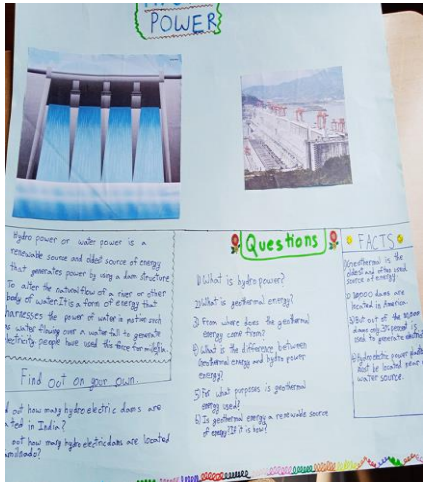 POWER
Hydro power or water power is a
renewable source and oldest source of energy
that generates power by using a dam structure
To alter the natural flow of a river or other
body of water. It is a form of energy that
harnesses the power of water in motion such
as water flowing over a water fall to generate
electricity. people have used this force for
Find out on your own.
out how many hydro electric dams are
in India?
out how many hydro electric dams are located
Questions
1) What is hydro power?
2) What is geothermal energy?
3) From where does the geothermal
energy come from?
4) What is the difference between
Geothermal energy and hydro power
energy?
5) For what purposes is geothermal
energy used?
6) Is geothermal energy a renewable source
of energy? If it is how?
FACTS
Geothermal is the
oldest and often used
source of energy.
dams are
located in America.
3) But out of the
dams only 3% percent is
used to generate
4) Hydro electric power
must be located near a
water source.